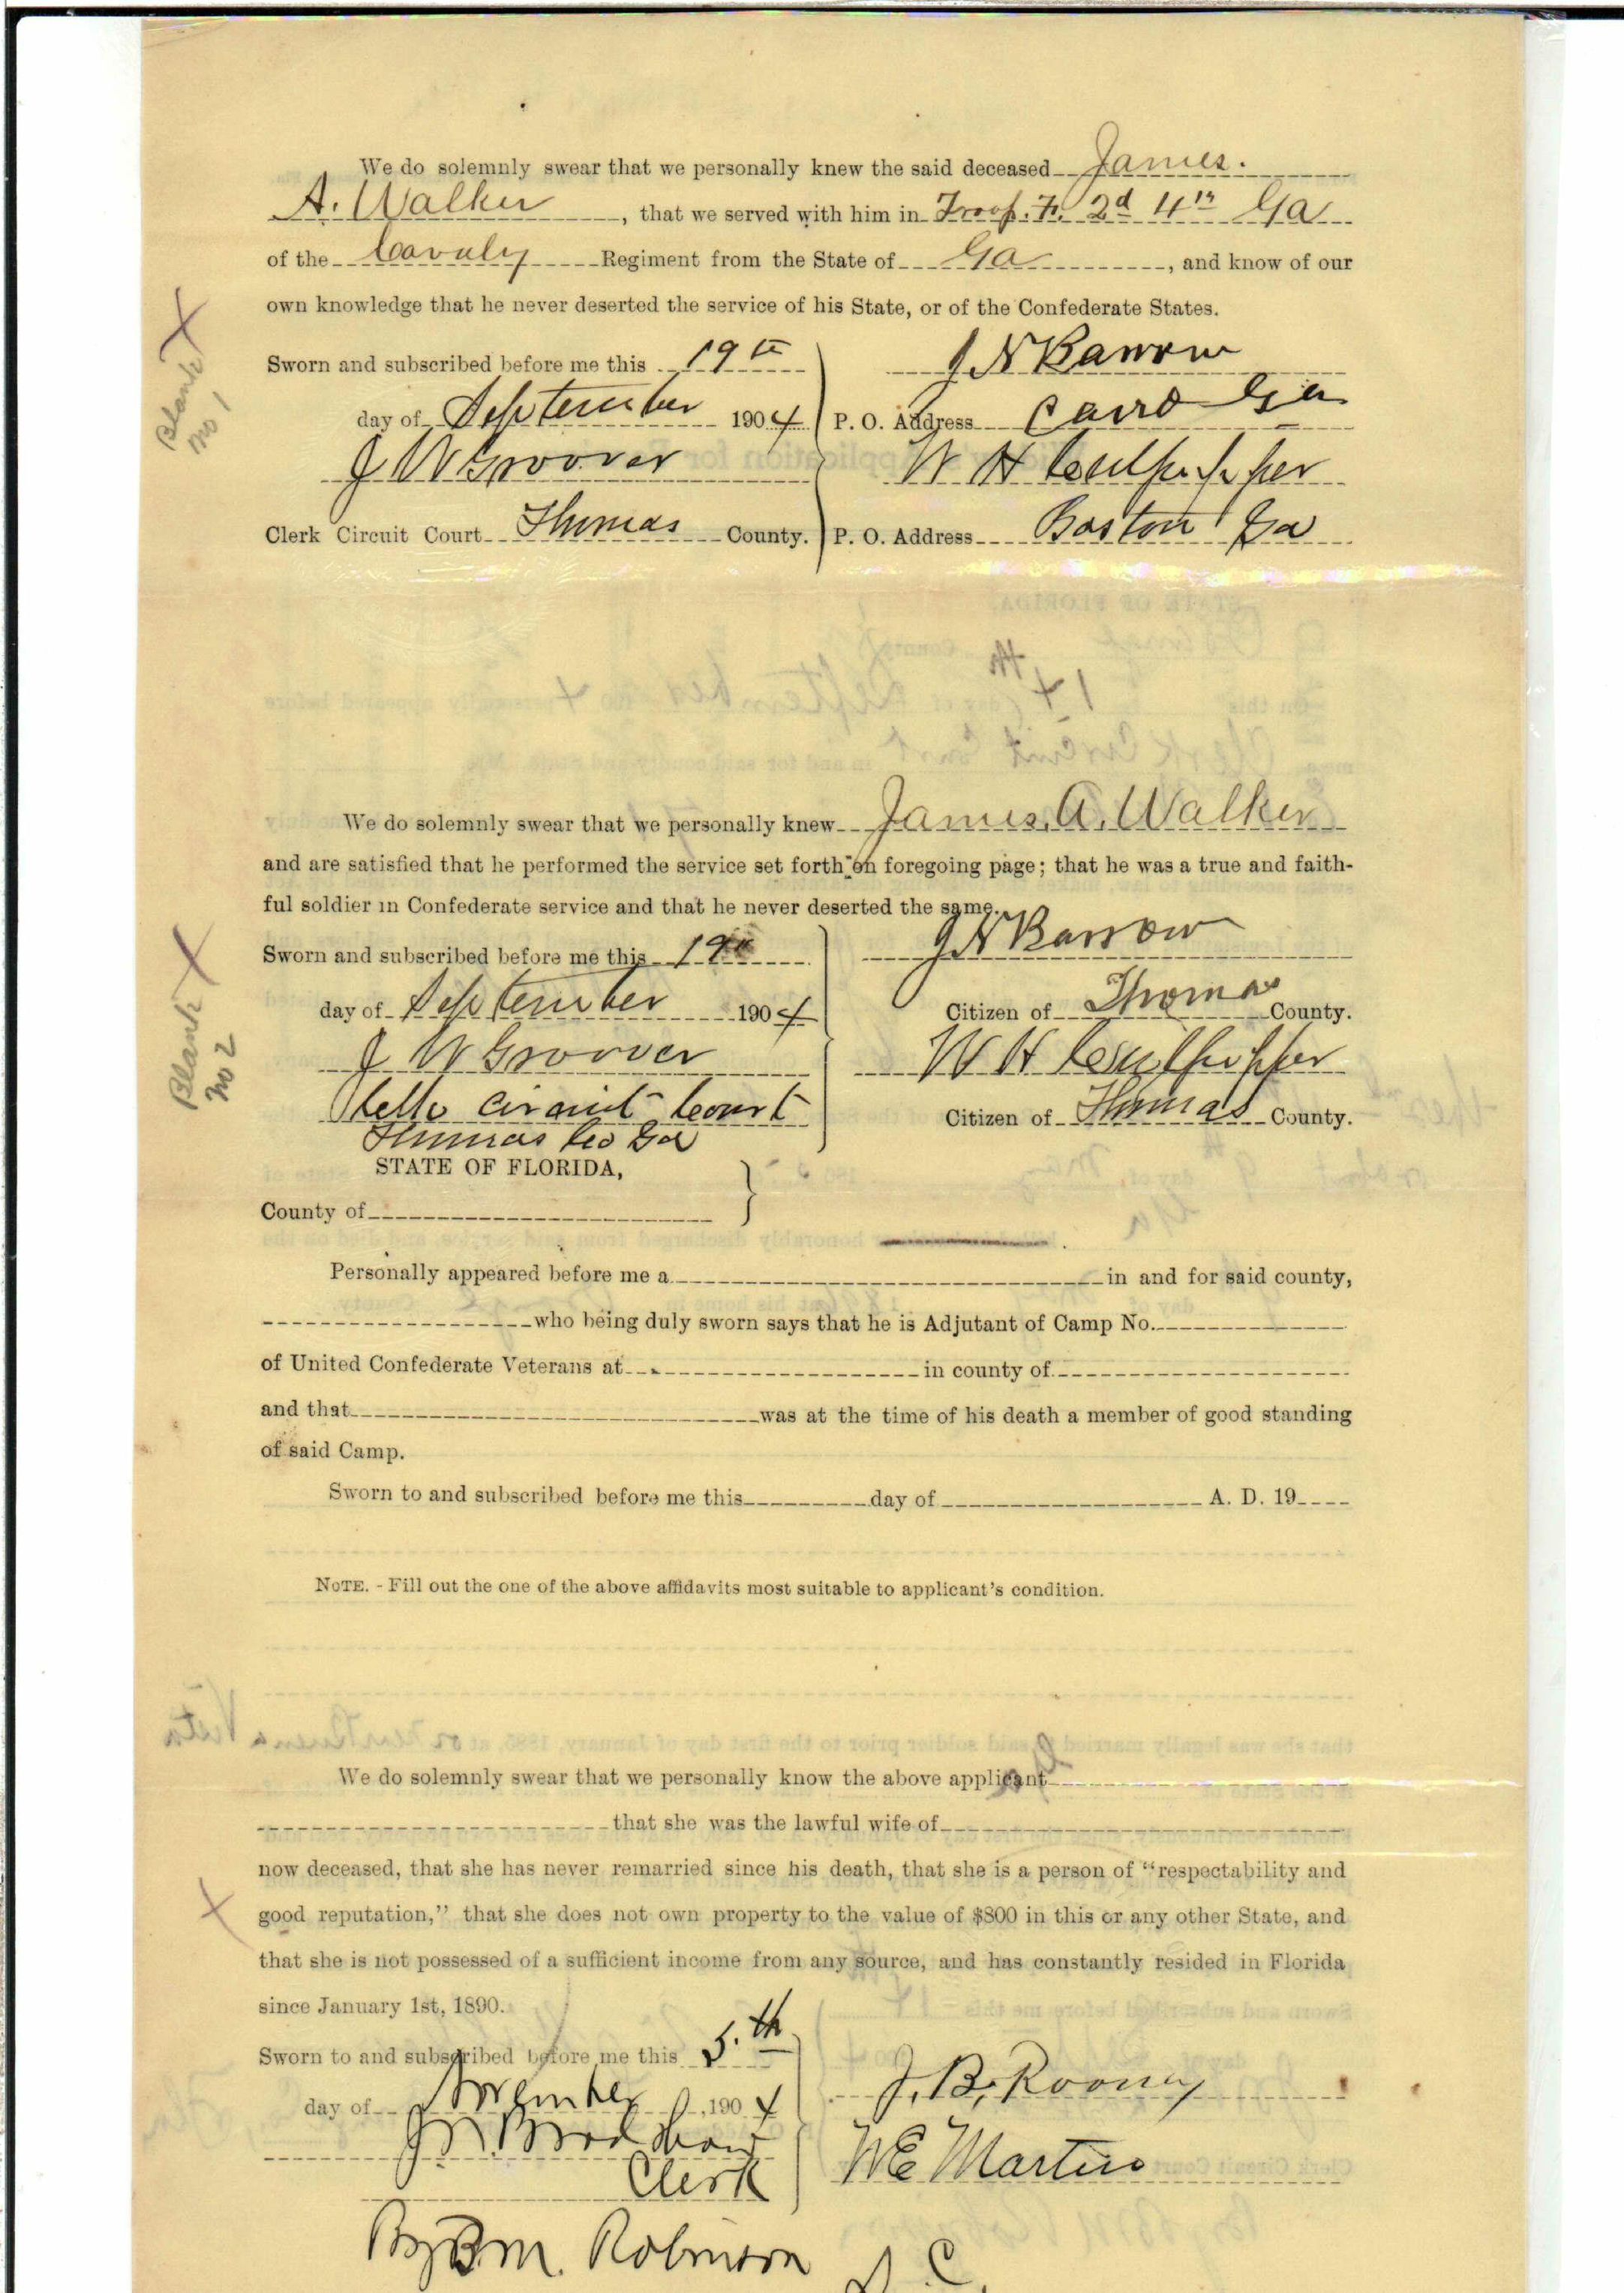 We do solemnly swear that we personally knew the said deceased James.
A. Walker, that we served with him in Troop. F. 2d 4th Ga
of the Cavaly Regiment from the State of Ga, and know of our
own knowledge that he never deserted the service of his State, or of the Confederate States.
Blank No 1
Sworn and subscribed before me this 19th
day of September 1904
J W Groover
Clerk Circuit Court Thomas County.
J N Barrow
P. O. Address Cairo Ga
W H Culpepper
P. O. Address Boston Ga
We do solemnly swear that we personally knew James. A. Walker
and are satisfied that he performed the service set forth on foregoing page; that he was a true and faith-
ful soldier in Confederate service and that he never deserted the same.
Blank No 2
Sworn and subscribed before me this 19th
day of September 1904
J W Groover
Circuit Court
Thomas Co Ga
J N Barrow
Citizen of Thomas County.
W H Culpepper
Citizen of Thomas County.
STATE OF FLORIDA,
County of
Personally appeared before me a in and for said county,
who being duly sworn says that he is Adjutant of Camp No.
of United Confederate Veterans at in county of
and that was at the time of his death a member of good standing
of said Camp.
Sworn to and subscribed before me this day of A. D. 19
NOTE. - Fill out the one of the above affidavits most suitable to applicant's condition.
We do solemnly swear that we personally know the above applicant
that she was the lawful wife of
now deceased, that she has never remarried since his death, that she is a person of "respectability and
good reputation," that she does not own property to the value of $800 in this or any other State, and
that she is not possessed of a sufficient income from any source, and has constantly resided in Florida
since January 1st, 1890.
Sworn to and subscribed before me this 5.th
day of November, 1904
J. M. Bradshaw
Clerk
By B M. Robinson D. C.
J. B. Rooney
W E Martin